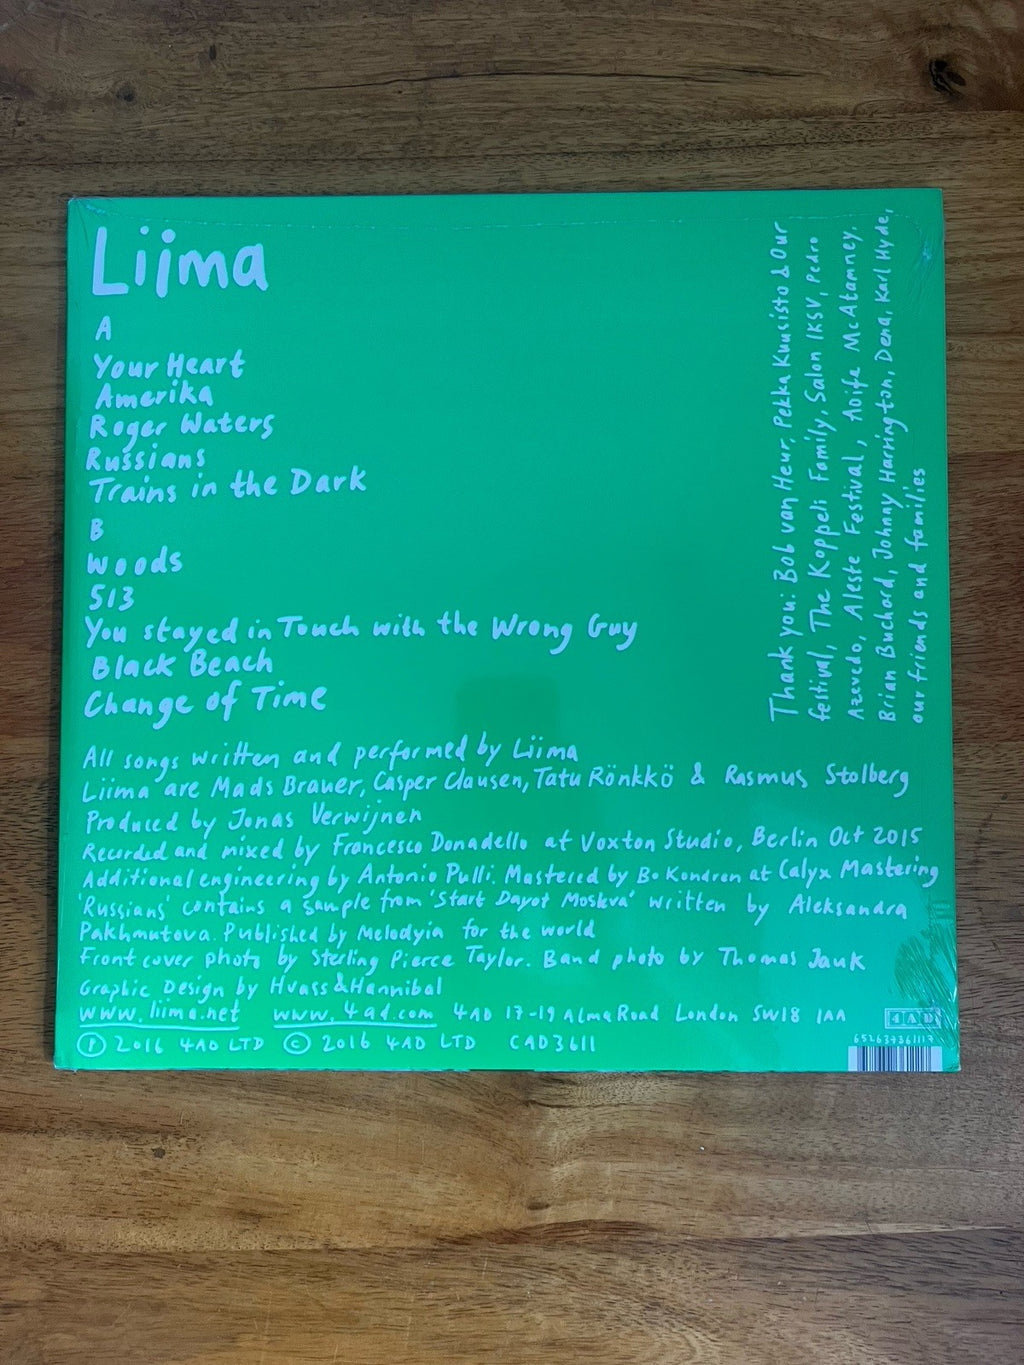 Liima
A
Your Heart
Amerika
Roger Waters
Russians
Trains in the Dark
B
Woods
513
You stayed in Touch with the Wrong Guy
Black Beach
Change of Time
All songs written and performed by Liima
Liima are Mads Brauer, Casper Clausen, Tatu Rönkkö & Rasmus Stolberg
Produced by Jonas Verwijnen
Recorded and mixed by Francesco Donadello at Voxton Studio, Berlin Oct 2015
Additional engineering by Antonio Pulli. Mastered by Bo Kondren at Calyx Mastering
'Russians' contains a sample from 'Start Dayot Moskva' written by Aleksandra
Pakhmutova. Published by Melodyia for the world
Front cover photo by Sterling Pierce Taylor. Band photo by Thomas Jauk
Graphic Design by Hvass&Hannibal
www.liima.net www.4ad.com 4AD 17-19 Alma Road London SW18 1AA
Ⓟ 2016 4AD LTD © 2016 4AD LTD CAD3611
Thank you: Bob van Heur, Pekka Kuusisto & Our
festival, The Koppeli Family, Salon IKSV, Pedro
Azevedo, Aleste Festival, Aoife McAtamney,
Brian Buchard, Johnny Harrington, Dena, Karl Hyde,
our friends and families
4AD
652637361117